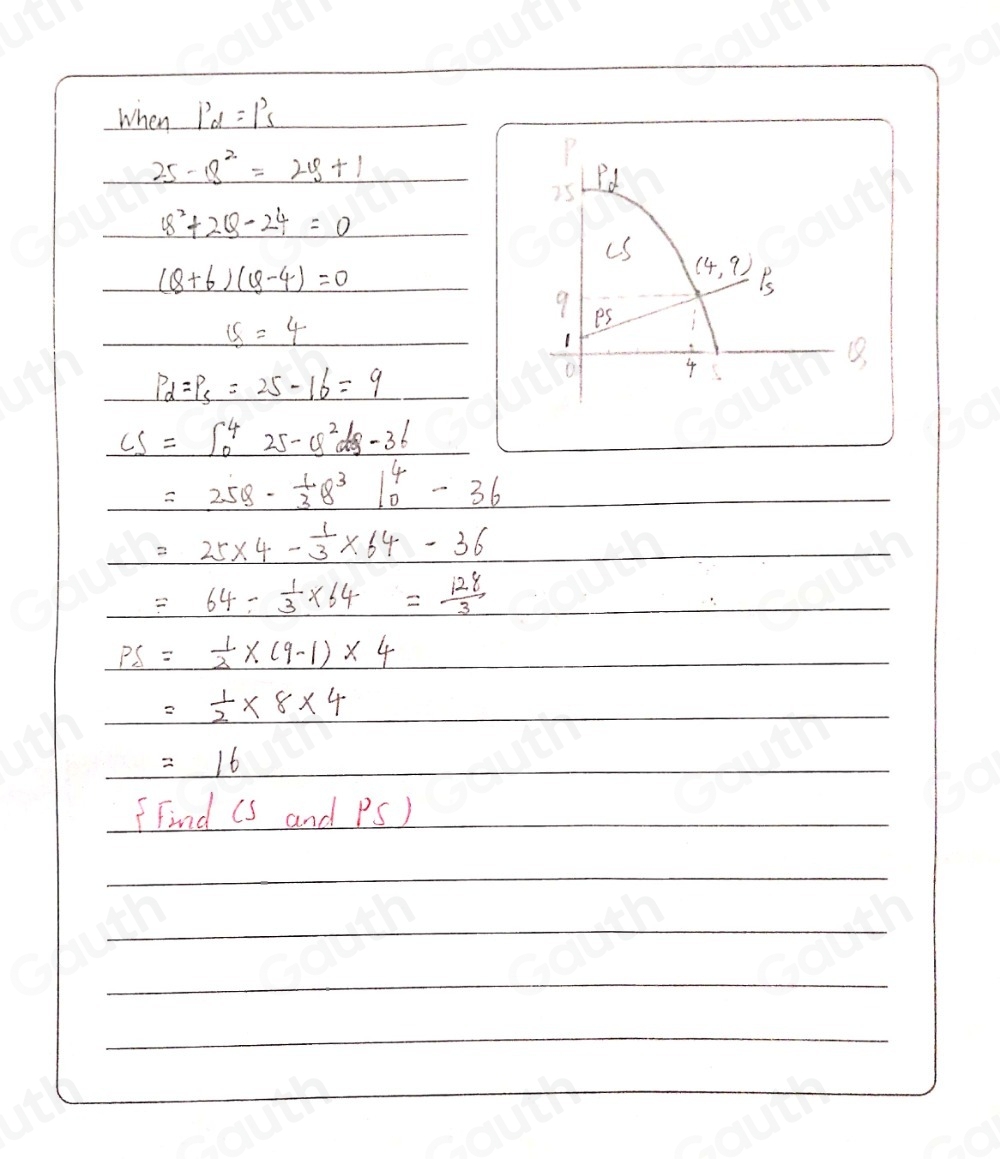 When Pd = Ps
25 - Q² = 2Q + 1
Q² + 2Q - 24 = 0
(Q+6)(Q-4) = 0
Q = 4
Pd = Ps = 25 - 16 = 9
CS = ∫₀⁴ 25 - Q² dQ - 36
= 25Q - 1/3 Q³ |₀⁴ - 36
= 25×4 - 1/3 × 64 - 36
= 64 - 1/3 × 64 = 128/3
PS = 1/2 × (9-1) × 4
= 1/2 × 8 × 4
= 16
{Find CS and PS)
P
25 Pd
CS
(4, 9) Ps
9
PS
1
0 4 5 Q
Gauth